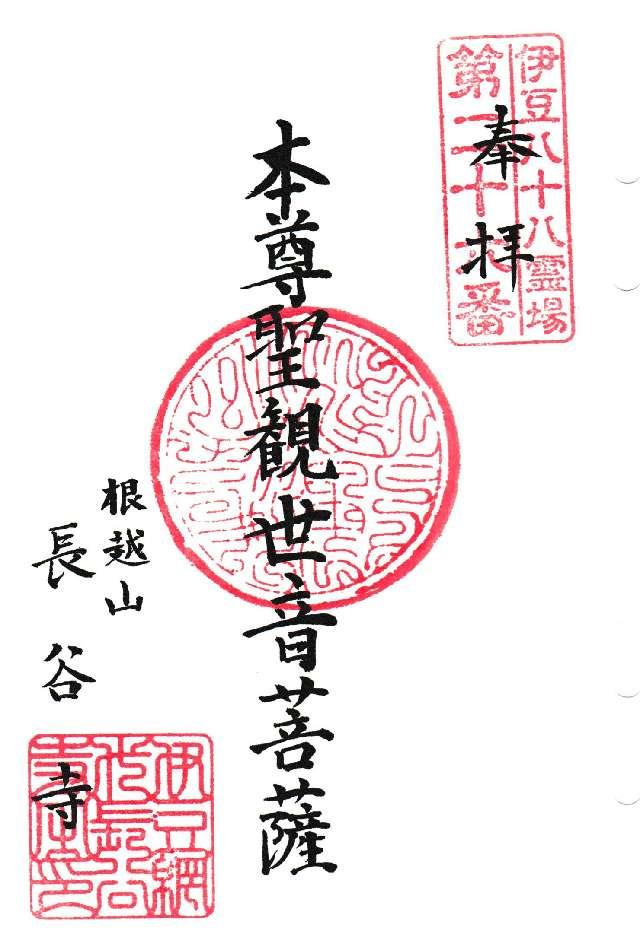 伊豆八十八霊場
第二十六番
奉拝
本尊聖観世音菩薩
根越山
長谷寺
伊豆網
代長谷